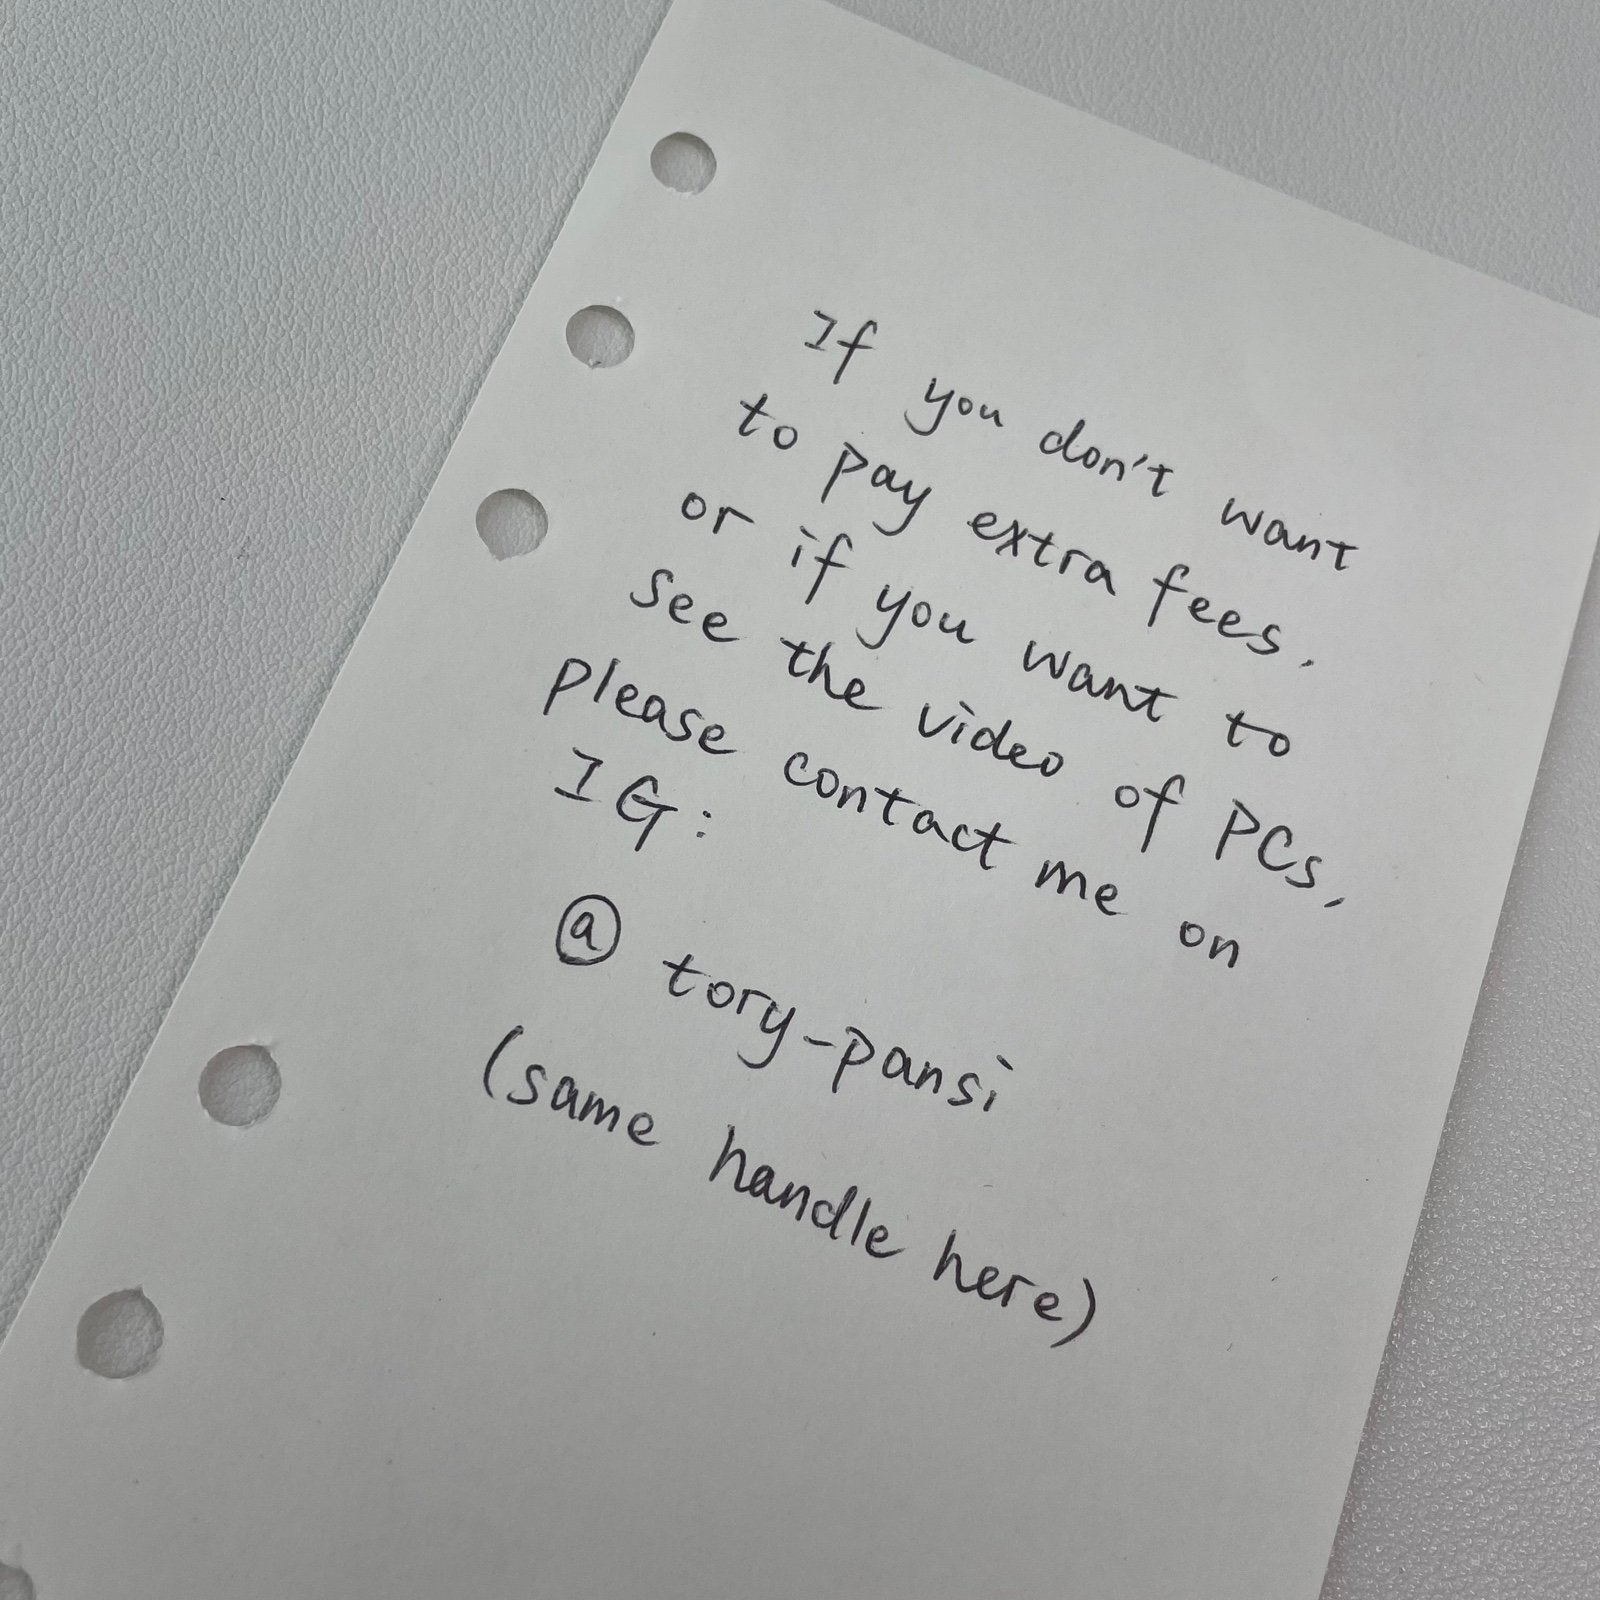 If you don't want
to pay extra fees,
or if you want to
see the video of PCs,
please contact me on
IG:
@ tory-pansi
(same handle here)